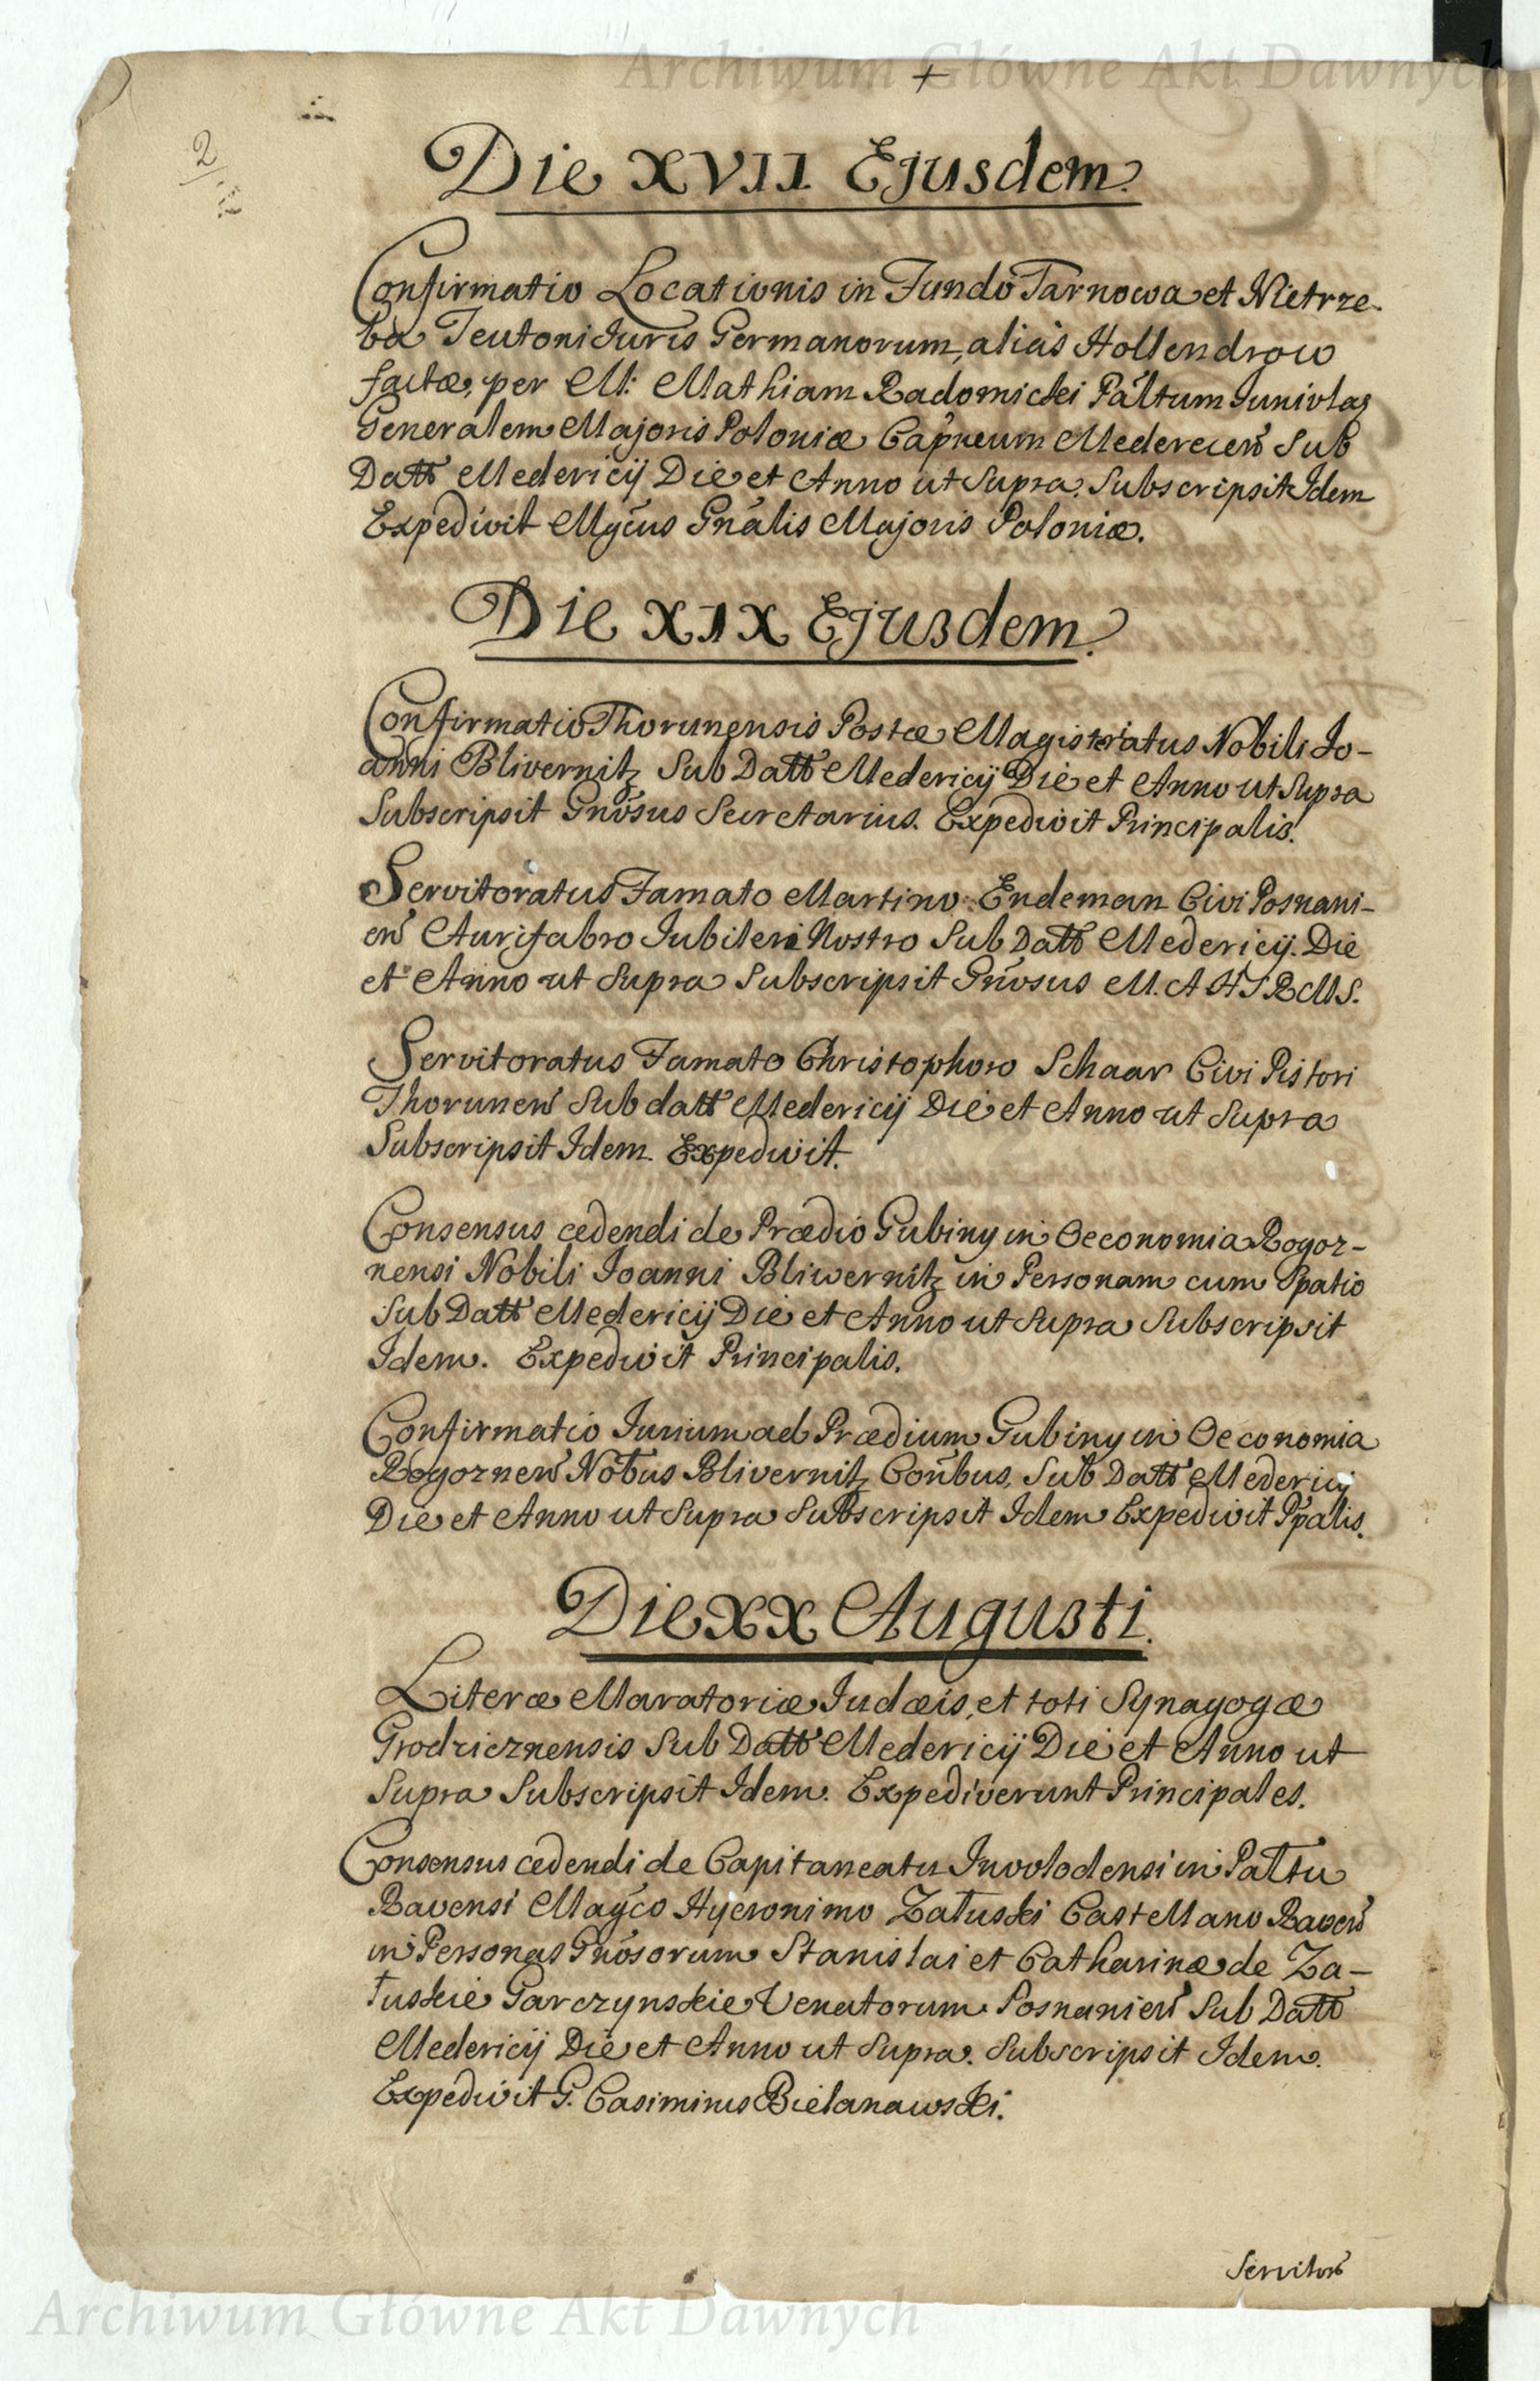 Archiwum Główne Akt Dawnych
+
2
Die XVII Ejusdem.
Confirmatio Locationis in Fundo Tarnowa et Nietrze-
ba Teutoni Iuris Germanorum, alias Hollendrow
factæ, per M: Mathiam Radomicki Pałtum Iunivlaz
Generalem Majoris Poloniæ Capneum Mederecen̄ Sub
Datt Medericij Die et Anno ut Supra. Subscripsit Idem
Expedivit Mgcus Gnalis Majoris Poloniæ.
Die XIX Ejusdem.
Confirmatio Thorunensis Postæ Magistratus Nobili Io-
anni Blivernitz Sub Datt Medericij Die et Anno ut Supra
Subscripsit Gnosus Secretarius. Expedivit Principalis.
Servitoratus Famato Martino Endeman Civi Posnani-
en̄ Aurifabro Iubileri Nostro Sub Datt Medericij. Die
et Anno ut Supra Subscripsit Gnosus M. A H S R M S.
Servitoratus Famato Christophoro Schaar Civi Pistori
Thorunen̄ Sub datt Medericij Die et Anno ut Supra
Subscripsit Idem. Expedivit.
Consensus cedendi de Prædio Gubiny in Oeconomia Rogoz-
nensi Nobili Ioanni Bliwernitz in Personam cum Spatio
Sub Datt Medericij Die et Anno ut Supra Subscripsit
Idem. Expedivit Principalis.
Confirmatio Iurium ad Prædium Gubiny in Oeconomia
Rogoznen̄ Nobus Blivernitz Conbus, Sub Datt Mederici
Die et Anno ut Supra Subscripsit Idem Expedivit Ppalis.
Die XX Augusti.
Literæ Moratoriæ Iudæis, et toti Synagogæ
Grodzicznensis Sub Datt Medericij Die et Anno ut
Supra Subscripsit Idem. Expediverunt Principales.
Consensus cedendi de Capitaneatu Inwlodensi in Pałtu
Ravensi Magco Hyeronimo Załuski Castellano Raven̄
in Personas Gnosorum Stanislai et Catharinæ de Za-
łuskie Garczynskie Venatorum Posnanien̄ Sub Datt
Medericij Die et Anno ut Supra. Subscripsit Idem.
Expedivit G. Casimirus Bielanawski.
Servitors
Archiwum Główne Akt Dawnych